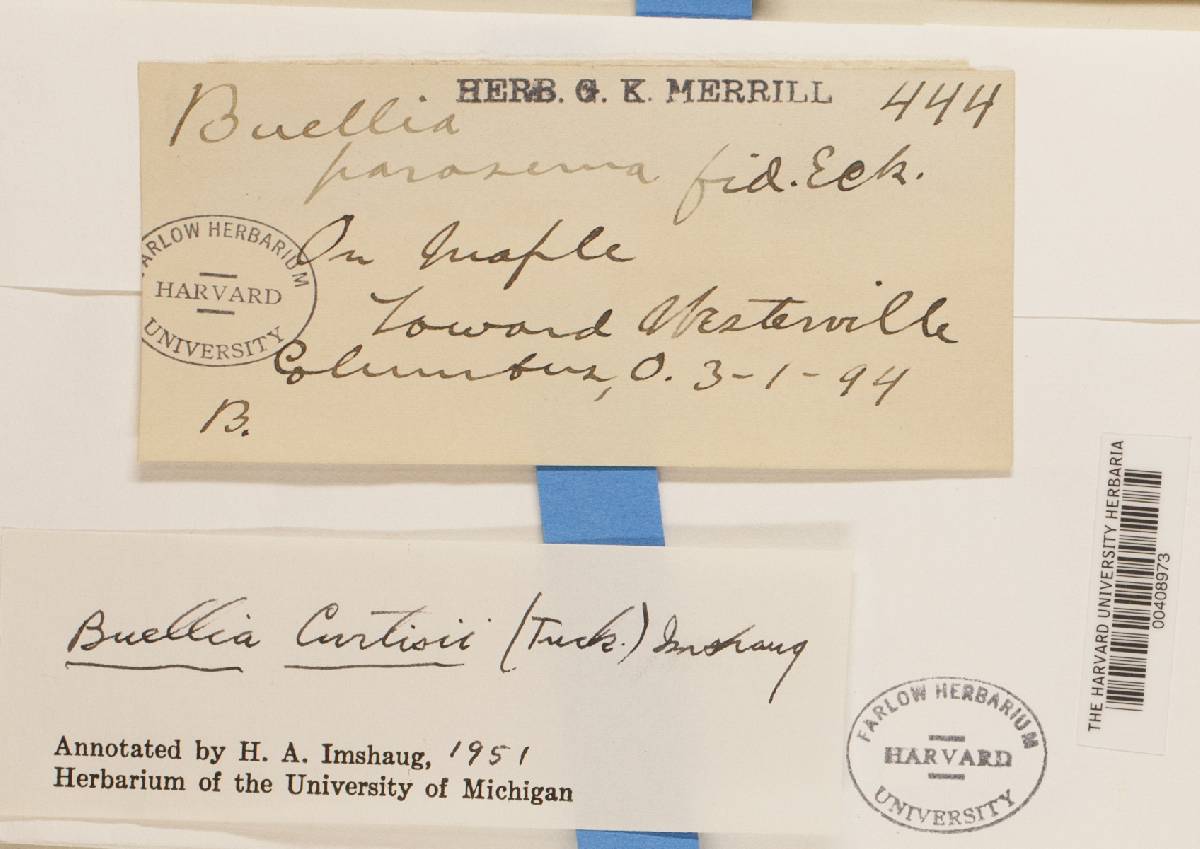 HERB. G. K. MERRILL 444
Buellia
parasema fid. Eck.
On Maple
Toward Westerville
Columbus, O. 3-1-94
B.
FARLOW HERBARIUM
HARVARD
UNIVERSITY
Buellia Curtisii (Tuck.) Imshaug
Annotated by H. A. Imshaug, 1951
Herbarium of the University of Michigan
FARLOW HERBARIUM
HARVARD
UNIVERSITY
THE HARVARD UNIVERSITY HERBARIA
00408973